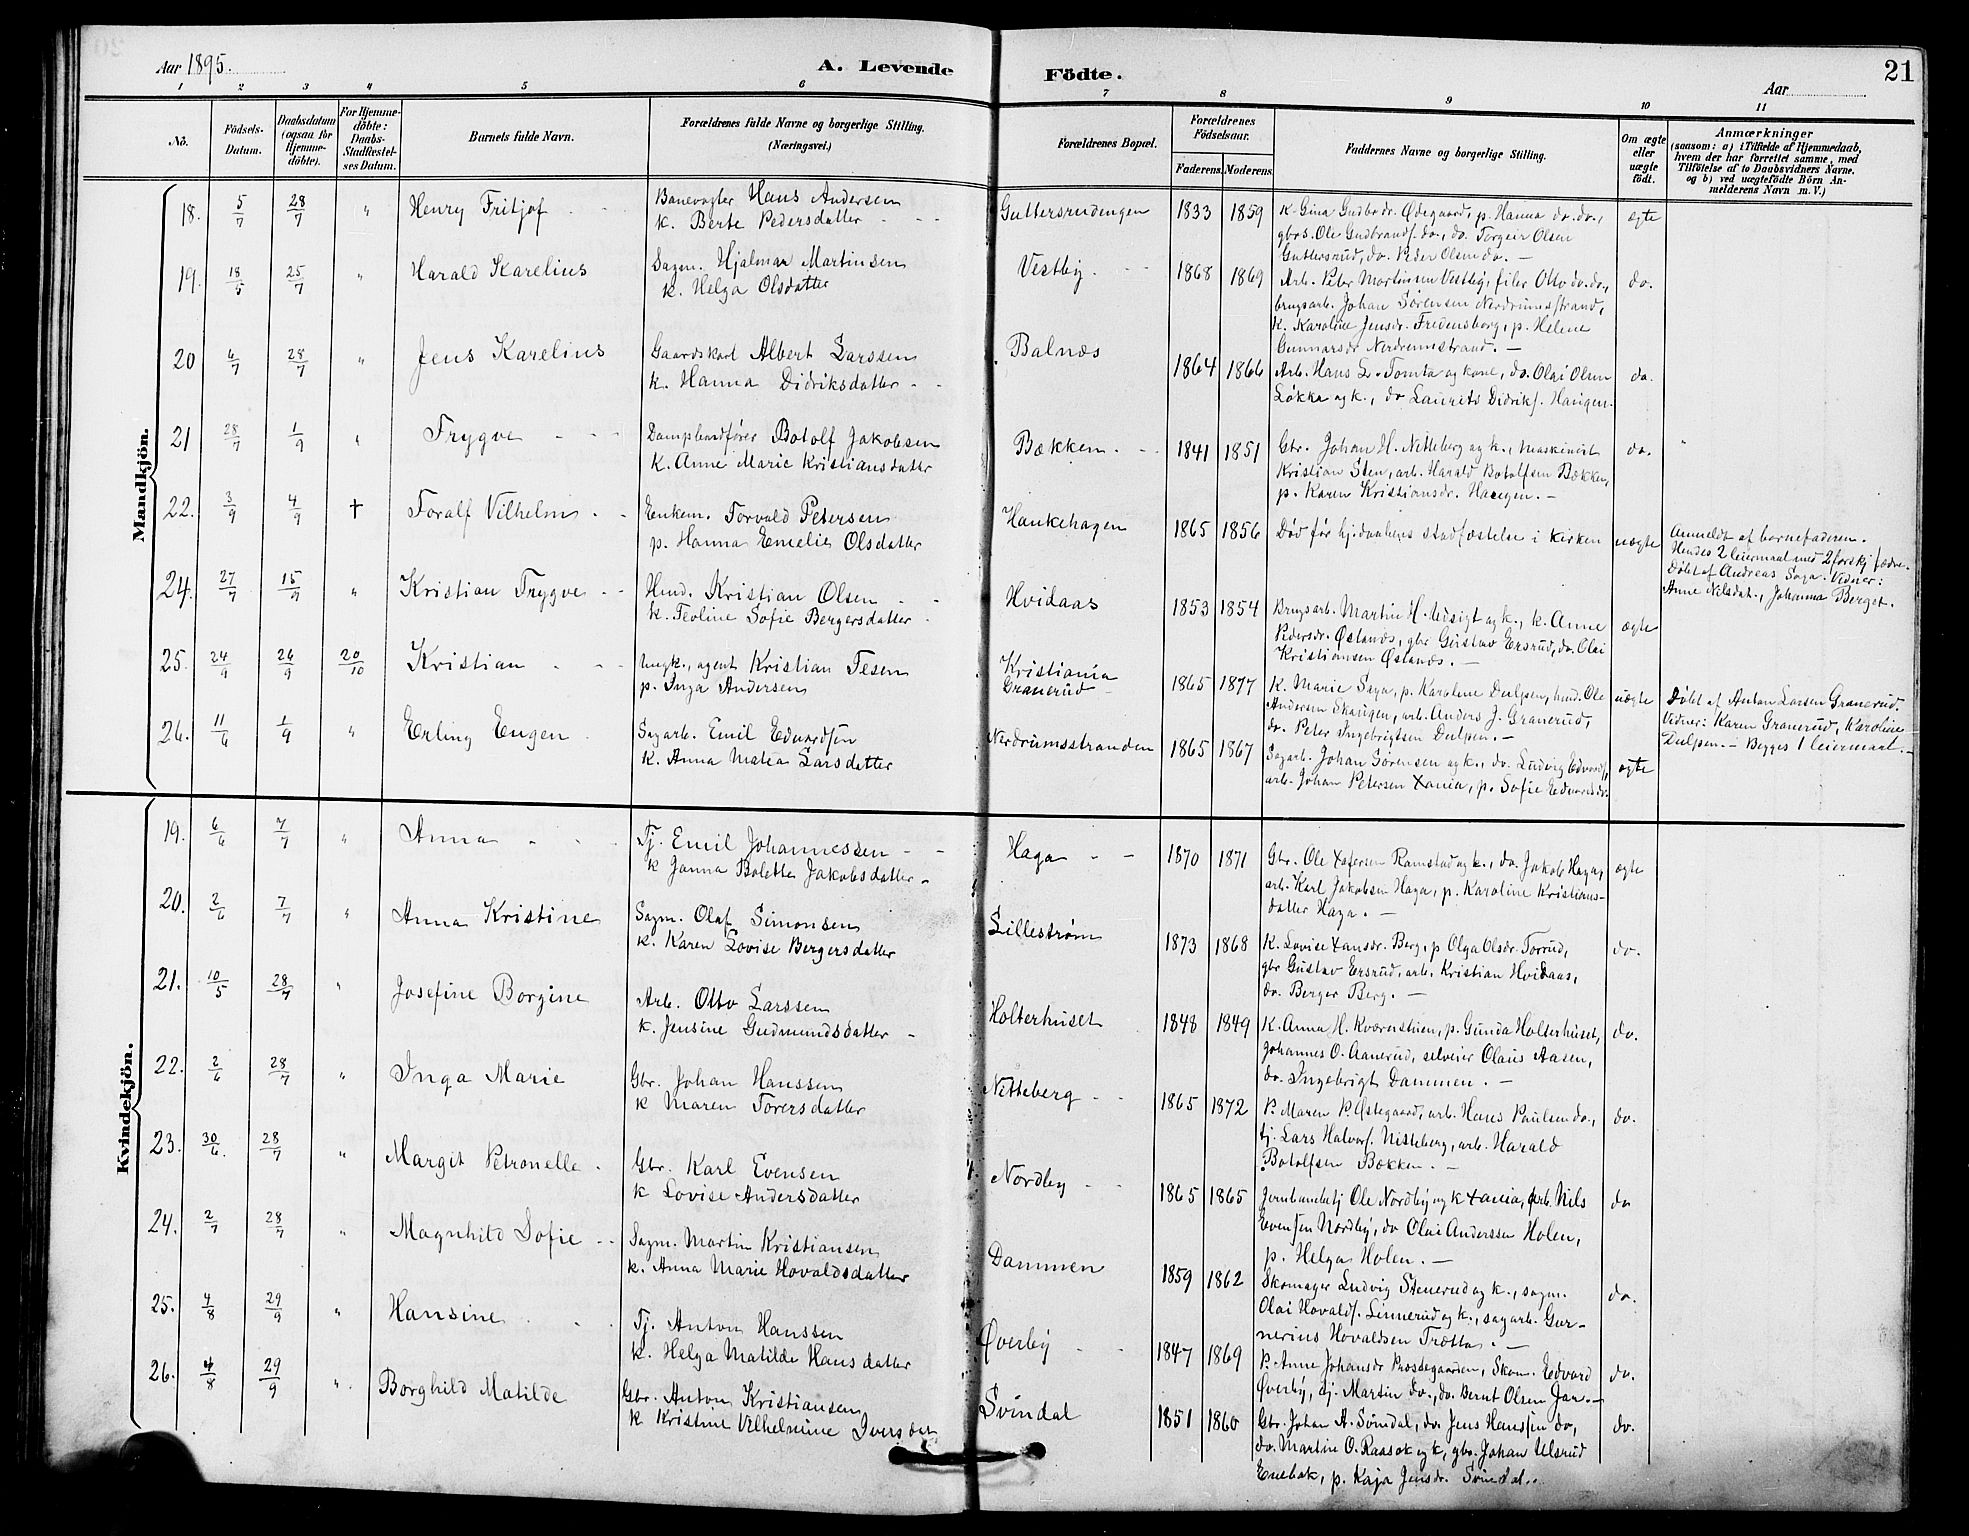 Aar 1895.
A. Levende Födte.
Aar
21
1 2 3 4 5 6 7 8 9 10 11
No.
Födsels-Datum.
Daabsdatum (ogsaa for Hjemme-döbte).
For Hjemme-döbte: Daabs-Stadfæstel-ses Datum.
Barnets fulde Navn.
Forældrenes fulde Navne og borgerlige Stilling. (Næringsvei.)
Forældrenes Bopæl.
Forældrenes Födselsaar.
Faderens. Moderens.
Faddernes Navne og borgerlige Stilling.
Om ægte eller uægte födt.
Anmærkninger
(saasom: a) i Tilfælde af Hjemmedaab,
hvem der har forrettet samme, med
Tilföielse af to Daabsvidners Navne.
og b) ved uægtefödte Börn An-
melderens Navn m. V.)
Mandkjön.
18. 5/7 28/7 " Henry Fritjof
Banevogter Hans Andersen
k. Berte Pedersdatter
Guttersrudengen 1833 1859
K. Gina Gudbrdr. Ødegaard, p. Hanna do. do.,
gbrs. Ole Gudbrands. do., do. Torgeir Olsen
Guttersrud, do. Peder Olsen do. —
ægte
19. 18/5 25/7 " Harald Karelius
Sagm. Hjalmar Martinsen
k. Helga Olsdatter
Vestby. 1868 1869
Arb. Peter Martinsen Vestby, filer Otto do. do.,
brugsarb. Johan Sørensen Nerdrumsstrand,
K. Karoline Jensdr. Fredensborg, p. Helene
Gunnarsdr. Nerdrumstrand. —
do.
20 6/7 28/7 " Jens Karelius
Gaardskarl Albert Larssen
k. Hanna Didriksdatter
Balnæs 1864 1866
Arb. Hans L. Tomta og kone, do. Olai Olsen
Løkka og k., do Laurits Didriks. Haugen.
do.
21 28/7 1/9 " Trygve
Dampbaadfører Botolf Jakobsen
K. Anne Marie Kristiansdatter
Bækken. 1841 1851
Gbr. Johan H. Nitteberg og k., maskinist
Kristian Sten, arb. Harald Botolfsen Bækken,
p. Karen Kristiansdr. Haugen. —
do. "
22. 3/9 4/9 † Toralf Vilhelm
Enkem. Torvald Petersen
p. Hanna Emelie Olsdatter
Haukehagen 1865 1856
Død før hj.daabens stadfæstelse i kirken
uægte
Anmeldt af barnefaderen.
Hendes 2 leiermaal med 2 forskj. fædre.
Døbt af Andreas Saga. Vidner:
Anne Nilsdat., Johanna Berget.
24. 27/7 15/9 " Kristian Trygve
Hmd. Kristian Olsen
k. Teoline Sofie Bergersdatter
Hvidaas 1853 1854
Brugsarb. Martin H. Udsigt og k., k. Anne
Pedersdr. Øslands, gbr Gustav Ersrud, do. Olai
Kristiansen Øslands. —
ægte
25. 24/9 26/9 20/10 Kristian
Ungk., agent Kristian Tesen
p. Inga Andersen
Kristiania
Granerud 1865 1877
K. Marie Saga, p. Karoline Dulpen, hmd. Ole
Andersen Skaugen, arb. Anders J. Granerud,
do. Peter Ingebrigtsen Dulpen. —
uægte
Døbt af Anton Larsen Granerud.
Vidner: Karen Granerud, Karoline
Dulpen. — Begges 1 leiermaal. —
26. 11/6 1/9 " Erling Eugen
Sagarb. Emil Edvardson
k. Anna Matea Larsdatter
Nerdrumsstranden 1865 1867
Sagarb. Johan Sørensen og k., do. Ludvig Edvards.,
arb. Johan Petersen Xania, p. Sofie Edvardsdr.
ægte
Kvindekjön.
19. 6/6 7/7 " Anna
Tj. Emil Johannessen
k Janna Bolette Jakobsdatter
Haga 1870 1871
Gbr. Ole Xofersen Ramstad og k., do. Jakob Haga,
arb. Karl Jakobsen Haga, p. Karoline Kristians-
datter Haga. —
ægte
20. 2/6 7/7 " Anna Kristine
Sagm. Olaf Simonsen
k. Karen Lovise Bergersdatter
Lillestrøm 1873 1868
K. Lovise Xansdr. Berg, p Olga Olsdr. Torrud,
gbr Gustav Ersrud, arb. Kristian Hvidaas,
do. Berger Berg. —
do.
21. 10/5 28/7 " Josefine Borgine
Arb. Otto Larssen
k. Jensine Gudmundsdatter
Holterhuset 1848 1849
K. Anna H. Kværnstuen, p. Gunda Holterhuset,
Johannes O. Aanerud, selveier Olaus Aasen,
do. Ingebrigt Dammen. —
do.
22. 2/6 28/7 " Inga Marie
Gbr. Johan Hanssen
k Maren Torersdatter
Nitteberg 1865 1872
P. Maren P. Østegaard, arb. Hans Paulsen do.,
tj. Lars Halvors. Nitteberg, arb. Harald
Botolfsen Bækken. —
do.
23. 30/6. 28/7 " Margit Petronelle
Gbr. Karl Evensen
k Lovise Andersdatter
Nordby 1865 1865
Jernbanebtj Ole Nordby og k Xania, arb. Nils
Evensen Nordby, do Olai Anderssen Holen,
p. Helga Holen. —
do
24. 2/7 28/7 " Magnhild Sofie
Sagm. Martin Kristiansen
k. Anna Marie Hovaldsdatter
Dammen 1859 1862
Skomager Ludvig Stenerud og k., sagm.
Olai Hovalds. Linnerud og k., sagarb. Gun-
nerius Hovaldsen Trætta. —
do.
25. 4/8 29/9 " Hansine
Tj. Anton Hanssen
k. Helga Matilde Hansdatter
Øverby 1847 1869
P. Anne Johansdr Prestegaarden, Skom. Edvard
Øverby, tj. Martin do., do. Bernt Olsen Jar. —
do.
26. 4/8 29/9 " Borghild Matilde
Gbr. Anton Kristiansen
k Kristine Vilhelmine Iversdat
Svindal 1851 1860
Gbr. Johan A. Svindal, do. Jens Hanssen do,
do. Martin O. Raasok og k, gbr. Johan Ulsrud
Enebak, p. Kaja Jensdr. Svindal.
do.